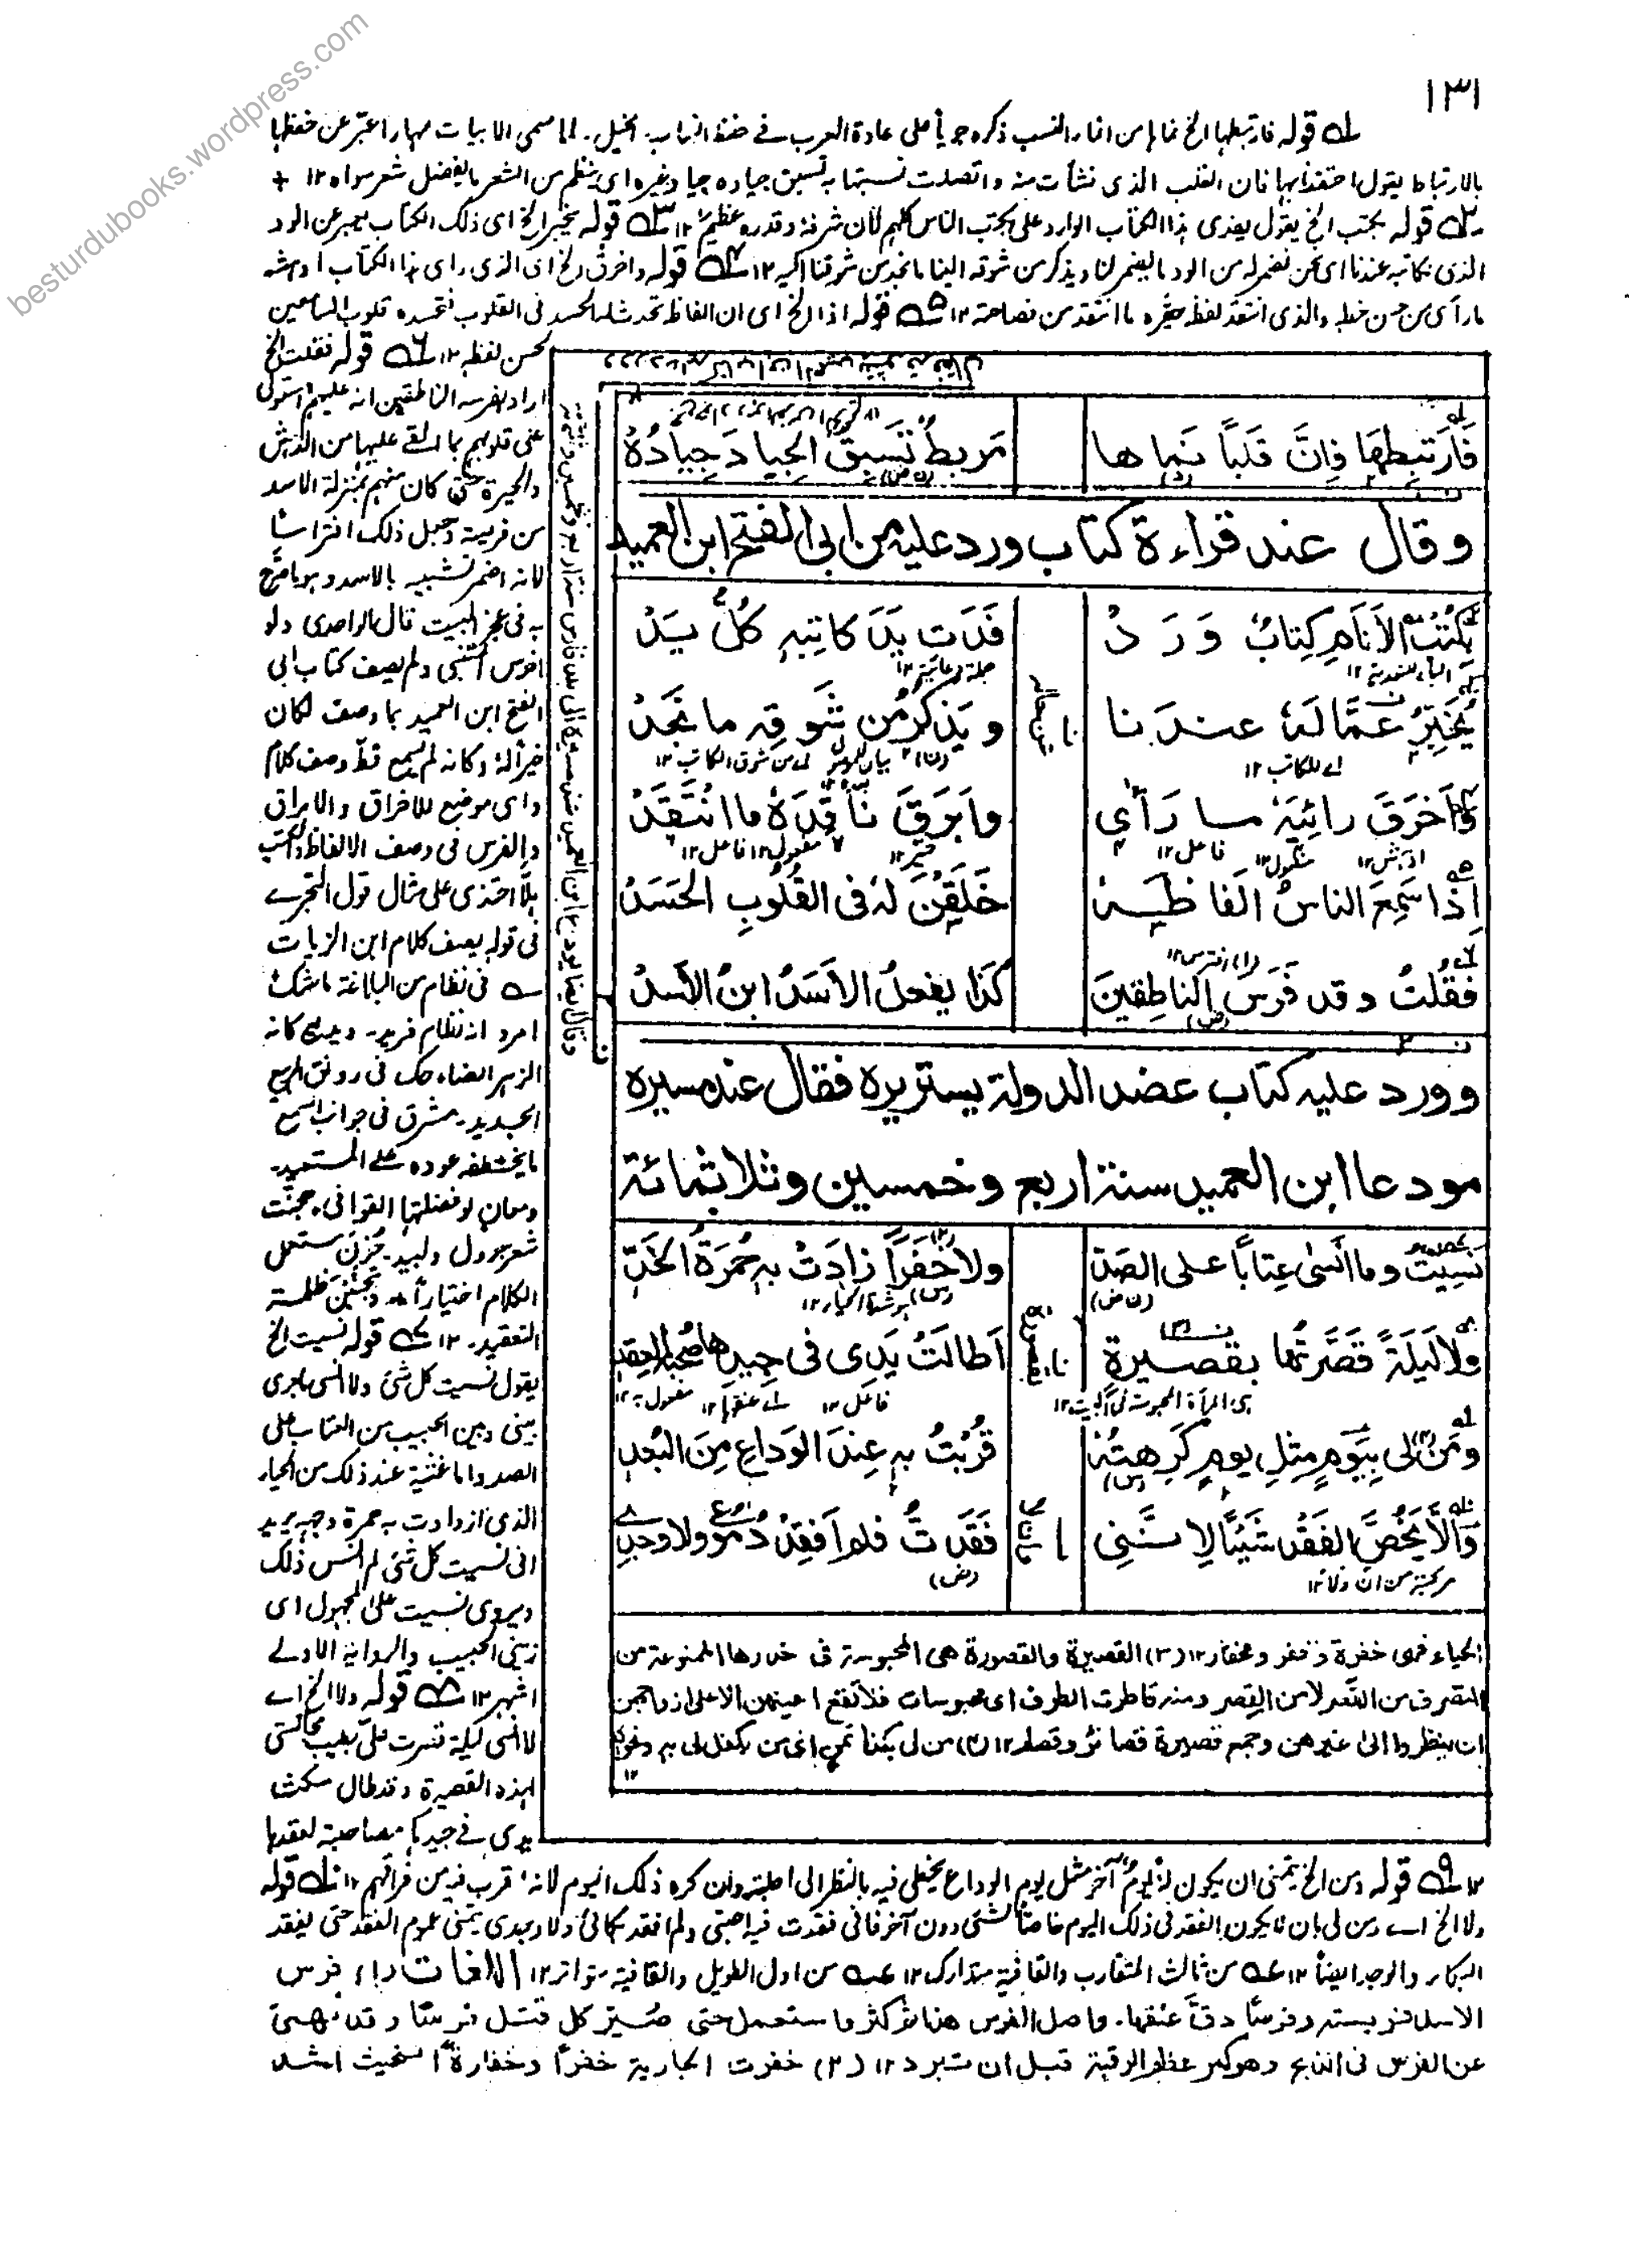 ١٣١
له قوله فارتبطها الخ نماها من انماء النسب ذكره جريا على عادة العرب في حفظ انساب الخيل ـ لما سمى الابيات مهارا عبر عن حفظها
بالارتباط يقول احتفظ بها فان القلب الذى نشأت منه واتصلت نسبتها به تسبق جياده جياد غيره اى ينظم من الشعر ما يفضل شعر سواه ١٢
قوله بكتب الخ يقول يفدى هذا الكتاب الوارد على بكتب الناس كلهم لان شرفه وقدره عظيم ١٢ قوله يخبر الخ اى ذلك الكتاب يعبر عن الود
الذى كاتبه عندنا اى نحن نضمر له من الود ما يضمر لنا ويذكر من شوقه الينا ما نجد من شوقنا اليه ١٢ قوله واخرق الخ اى الذى راى هذا الكتاب ادهشه
ما رأى من حسن خطه والذى انتقد لفظه حيره ما انتقد من فصاحته ١٢ قوله اذا الخ اى ان الفاظه تحدث له الحسد فى القلوب فتحسده قلوب السامعين
لحسن لفظه ١٢ قوله فقلت الخ
اراد بفرسه الناطقين انه عليهم استولى
على قلوبهم بما القے عليها من الدهش
والحيرة حتى كان منهم بمنزلة الاسد
من فريسته وجعل ذلك افتراسا
لانه اضمر تشبيهه بالاسد وهو ما صرح
به فى عجز البيت قال الواحدى ولو
اخرس المتنبى ولم يصف كتاب ابى
الفتح ابن العميد بما وصف لكان
خيرا له وكانه لم يسمع قط وصف كلام
واى موضع للاخراق والابراق
والفرس فى وصف الالفاظ والكتب
هلا احتذى على مثال قول البحترے
فى قوله يصف كلام ابن الزيات
ے فى نظام من البلاغة ما شك
امرء انه نظام فريد ـ وبديع كانه
الزهر الضاحك فى رونق الربيع
الجديد ـ مشرق فى جوانب السمع
ما يخلقه عوده علے المستعيد ـ
ومعان لو فضلتها القوافى ـ هجنت
شعر جرول ولبيد ـ حزن مستعمل
الكلام اختيارا ـ وتجنبن ظلمة
التعقيد ـ ١٢ قوله نسيت الخ
يقول نسيت كل شئ ولا انسى ما جرى
بينى وبين الحبيب من العتاب على
الصد وما غشيه عند ذلك من الحياء
الذى ازدادت به حمرة وجهه يريد
انى نسيت كل شئ لم انس ذلك
ويروى نسيت على المجهول اى
نسينى الحبيب والرواية الاولے
اشهر ١٢ قوله ولا الخ اے
لا انسى ليلة قصرت علىّ بطيب مجالستى
لهذه القصيرة وقد طال مكث
يدى فے جيدها مصاحبة لعقدها
فَارتبِطها فاِنَّ قَلبًا نَماها
مَربطٌ تَسبِقُ الجِيادَ جِيادُهُ
وقال عند قراءة كتاب ورد عليه من ابى الفتح ابن العميد
بِكُتْبِ الاَنَامِ كِتابٌ وَرَدْ
فَدَت يَدَ كاتِبِهٖ كُلُّ يَدْ
الباء للتفدية ١٢
جملة دعائية ١٢
يُخَبِّرُ عَمَّا لَهٗ عندَنا
ويَذكُرُ مِن شَوقِهٖ ما نَجَدْ
اے للكاتب ١٢
اے من شوق الكاتب ١٢
واَخرَقَ رائِيَهٗ ما رَأٰى
واَبرَقَ ناقِدَهٗ ما انْتَقَدْ
ادهش ١٢ مفعول ١٢ فاعل ١٢
حير ١٢ مفعول ١٢ فاعل ١٢
اِذا سَمِعَ الناسُ اَلفاظَهٗ
خَلَقْنَ لَهٗ فى القُلُوبِ الحَسَدْ
فقُلتُ وقد فَرَسَ الناطِقينَ
كَذا يفعلُ الاَسَدُ ابنُ الاَسَدْ
وورد عليه كتاب عضد الدولة يستزيره فقال عند مسيره
مودعا ابن العميد سنة اربع وخمسين وثلاثمائة
نَسِيتُ وما اَنسٰى عِتابًا على الصَدِّ
ولا خَفَرًا زادَتْ بهٖ حُمرَةُ الخَدِّ
شدة الحياء ١٢
ولا لَيلَةً قَصَّرتُها بقصيرةٍ
اَطالَتْ يَدِى فى جِيدِها صُحبةَ العِقدِ
هى المرأة المحبوسة فى البيت ١٢
فاعل ١٢ اے عنقها ١٢ مفعول به ١٢
ومَن لى بِيَومٍ مِثلِ يومٍ كَرِهتُهٗ
قَرُبْتُ بهٖ عِندَ الوَداعِ مِنَ البُعدِ
واَلَّا يَخُصَّ الفَقْدُ شَيئًا لِاَنَّنِى
فَقَدتُ فلم اَفقِدْ دُمُوعِى ولا وَجدِى
مركبة من ان ولا ١٢
الحياء فهى خفرة وخفر ومخفار ١٢ (٣) القصيرة والقصورة هى المحبوسة فى خدرها الممنوعة من
التصرف من القصر لا من القِصر ومنه قاصرات الطرف اى محبوسات فلا تقع اعينهن الا على ازواجهن
ان ينظروا الى غيرهن وجمع قصيرة قصائر وقصار ١٢ (٤) من لى بكذا تمنٍ اى من يكفل لى به ونحوه
١٢
قوله ومن الخ يتمنى ان يكون له يوم آخر مثل يوم الوداع يحظى فيه بالنظر الى احبته وان كره ذلك اليوم لانه قرب فيه من فراقهم ١٢ قوله
ولا الخ اے ومن لى بان لا يكون الفقد فى ذلك اليوم خاصا لشئ دون آخر فانى فقدت فيه احبتى ولم افقد بكائى ولا وجدى يتمنى عموم الفقد حتى يفقد
البكاء والوجد ايضا ١٢ عه من ثالث المتقارب والقافية متدارك ١٢ عه من اول الطويل والقافية متواتر ١٢ اللغات (١) فرس
الاسد فريسته وفرسًا دقّ عنقها. واصل الفرس هذا ثم كثر واستعمل حتى صُيّر كل قتل فرسًا وقد نهى
عن الفرس فى الذبح وهو كسر عظم الرقبة قبل ان تبرد ١٢ (٢) خفرت الجارية خفرًا وخفارةً استحيت اشد
besturdubooks.wordpress.com